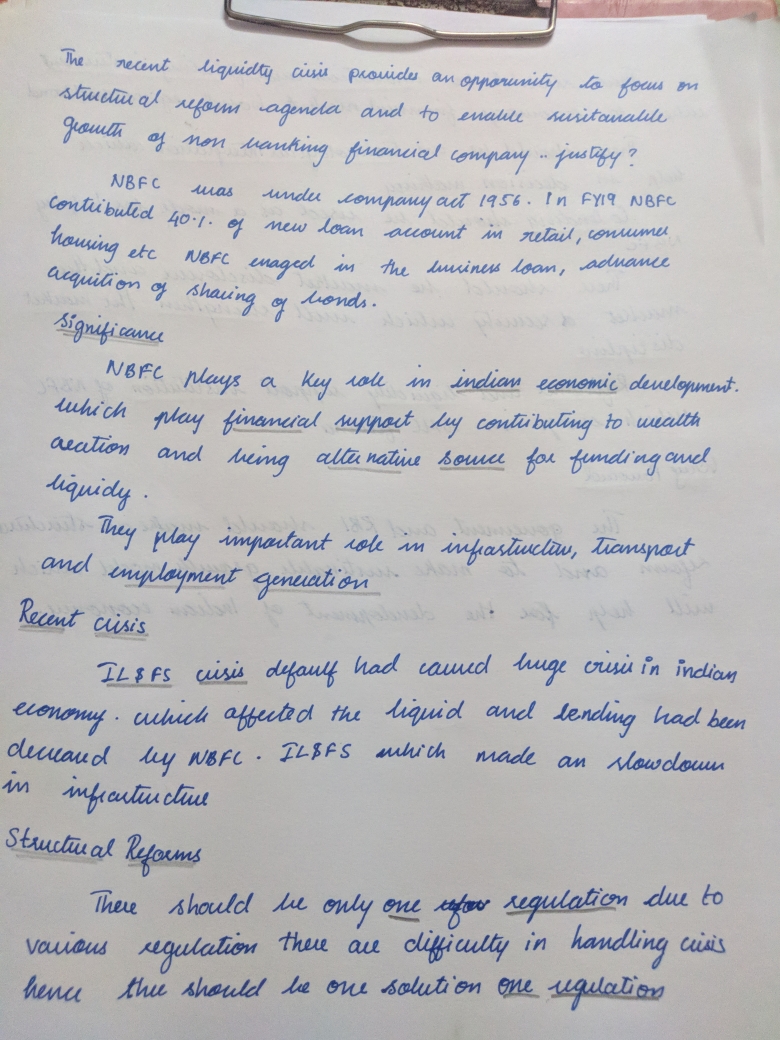 The recent liquidty crisis provides an opporunity to focus on
structural reform agenda and to enable susitanable
growth of non banking financial company .. justify?
NBFC was under company act 1956. In FY19 NBFC
contributed 40%. of new loan account in retail, consumer
housing etc NBFC enaged in the business loan, advance
acquition of sharing of bonds.
Significance
NBFC plays a key role in indian economic development.
which play financial support by contributing to wealth
creation and being alternative source for funding and
liquidy.
They play important role in infrastructure, transport
and employment generation
Recent crisis
IL$FS crisis default had caused huge crisis in indian
economy. which affected the liquid and lending had been
decreased by NBFC. IL$FS which made an slowdown
in infrastructure
Structural Reforms
There should be only one regulation due to
various regulation there are difficulty in handling crisis
hence there should be one solution one regulation